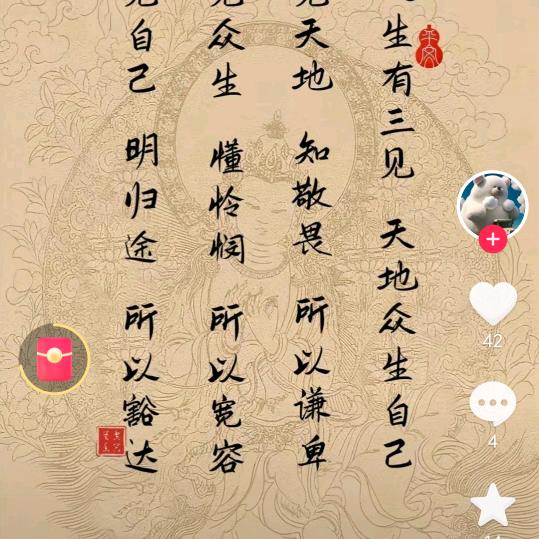 生有三见 天地众生自己
见天地 知敬畏 所以谦卑
见众生 懂怜悯 所以宽容
见自己 明归途 所以豁达
平安
42
4